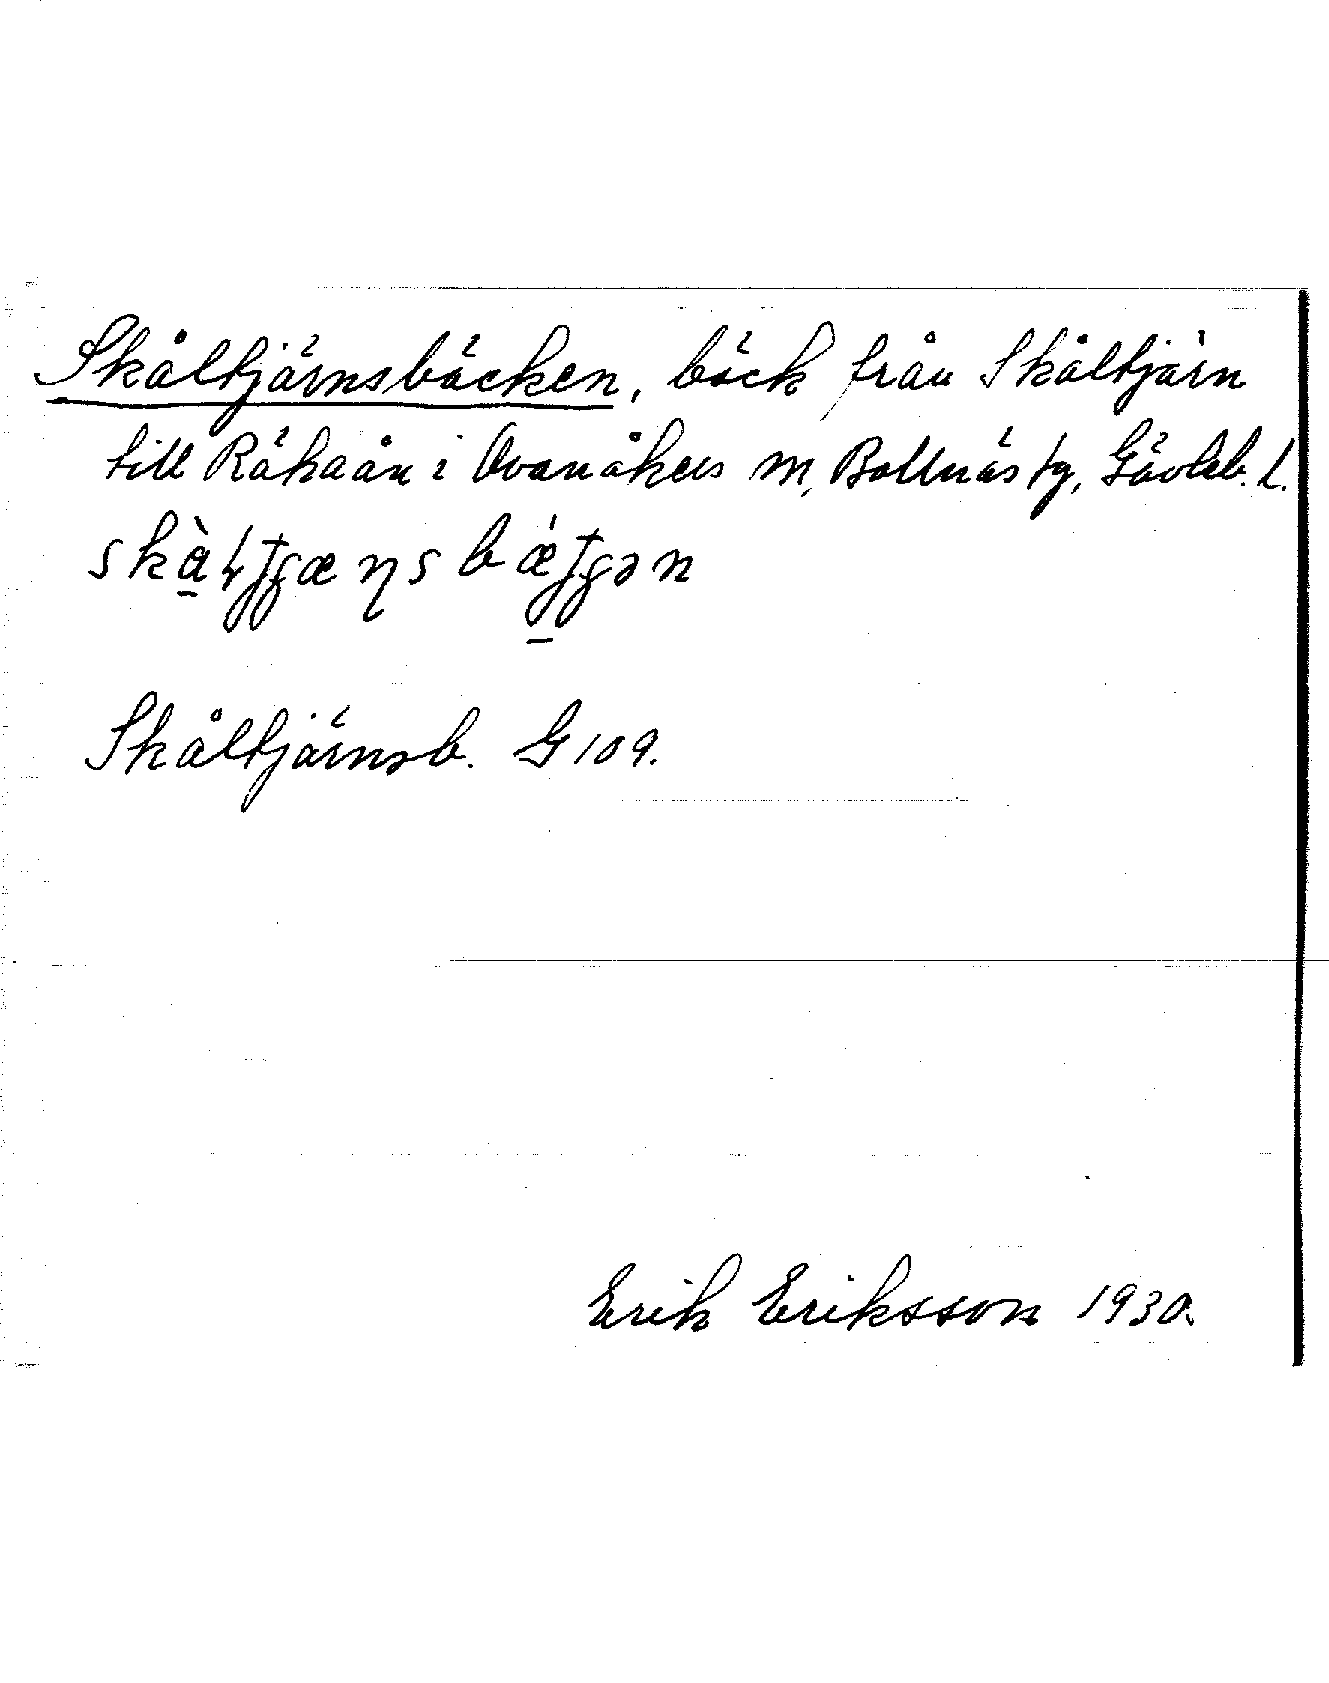 Skåltjärnsbäcken, bäck från Skåltjärn
till Räkaån i Ovanåkers m, Bollnäs tg, Gävleb. l.
Skåltjärnsb. G 109.
Erik Eriksson 1930.